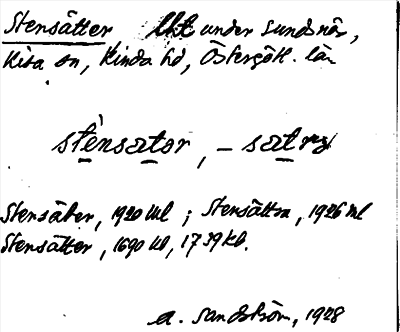 Stensätter Lht under Sundsnäs,
Kisa sn, Kinda hd, Östergötl. län
stènsator, – satrņ
Stensäter, 1920 ml ; Stensättra, 1926 ml
Stensätter, 1690 kb, 1739 kb.
A. Sandström, 1928